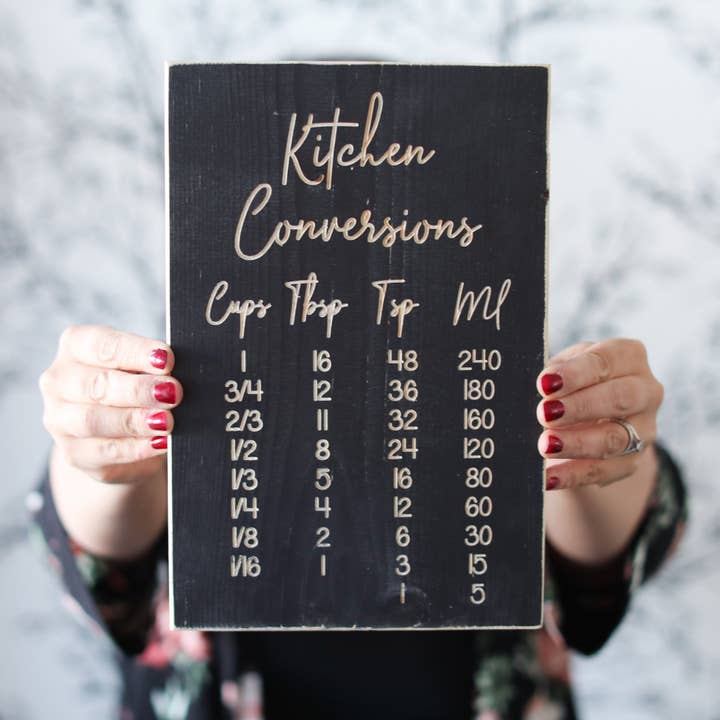 Kitchen
Conversions
Cups Tbsp Tsp Ml
1 16 48 240
3/4 12 36 180
2/3 11 32 160
1/2 8 24 120
1/3 5 16 80
1/4 4 12 60
1/8 2 6 30
1/16 1 3 15
1 5